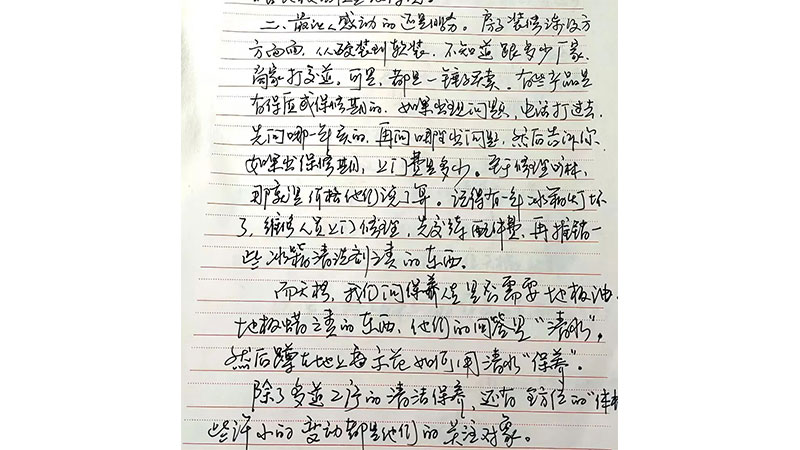 二、最让人感动的还是服务。房子装修涉及方
方面面，从改装到软装，不知道跟多少厂家、
商家打交道，可是，都是一锤子买卖。有些产品是
有保质或保修期的，如果出现问题，电话打过去，
先问哪一年买的，再问哪里出问题，然后告诉你
如果出保修期，上门费是多少。至于修理吗，
那就是价格他们说了算。记得有一年冰箱灯坏
了，维修人员上门修理，先交待配件费，再推销一
些冰箱清洗剂之类的东西。
而天格，我们问保养是否需要地板油、
地板蜡之类的东西，他们的回答是“清水”，
然后蹲在地上再示范如何用清水“保养”。
除了多道工序的清洁保养，还有全方位的“体
些许小的变动都是他们的关注对象。